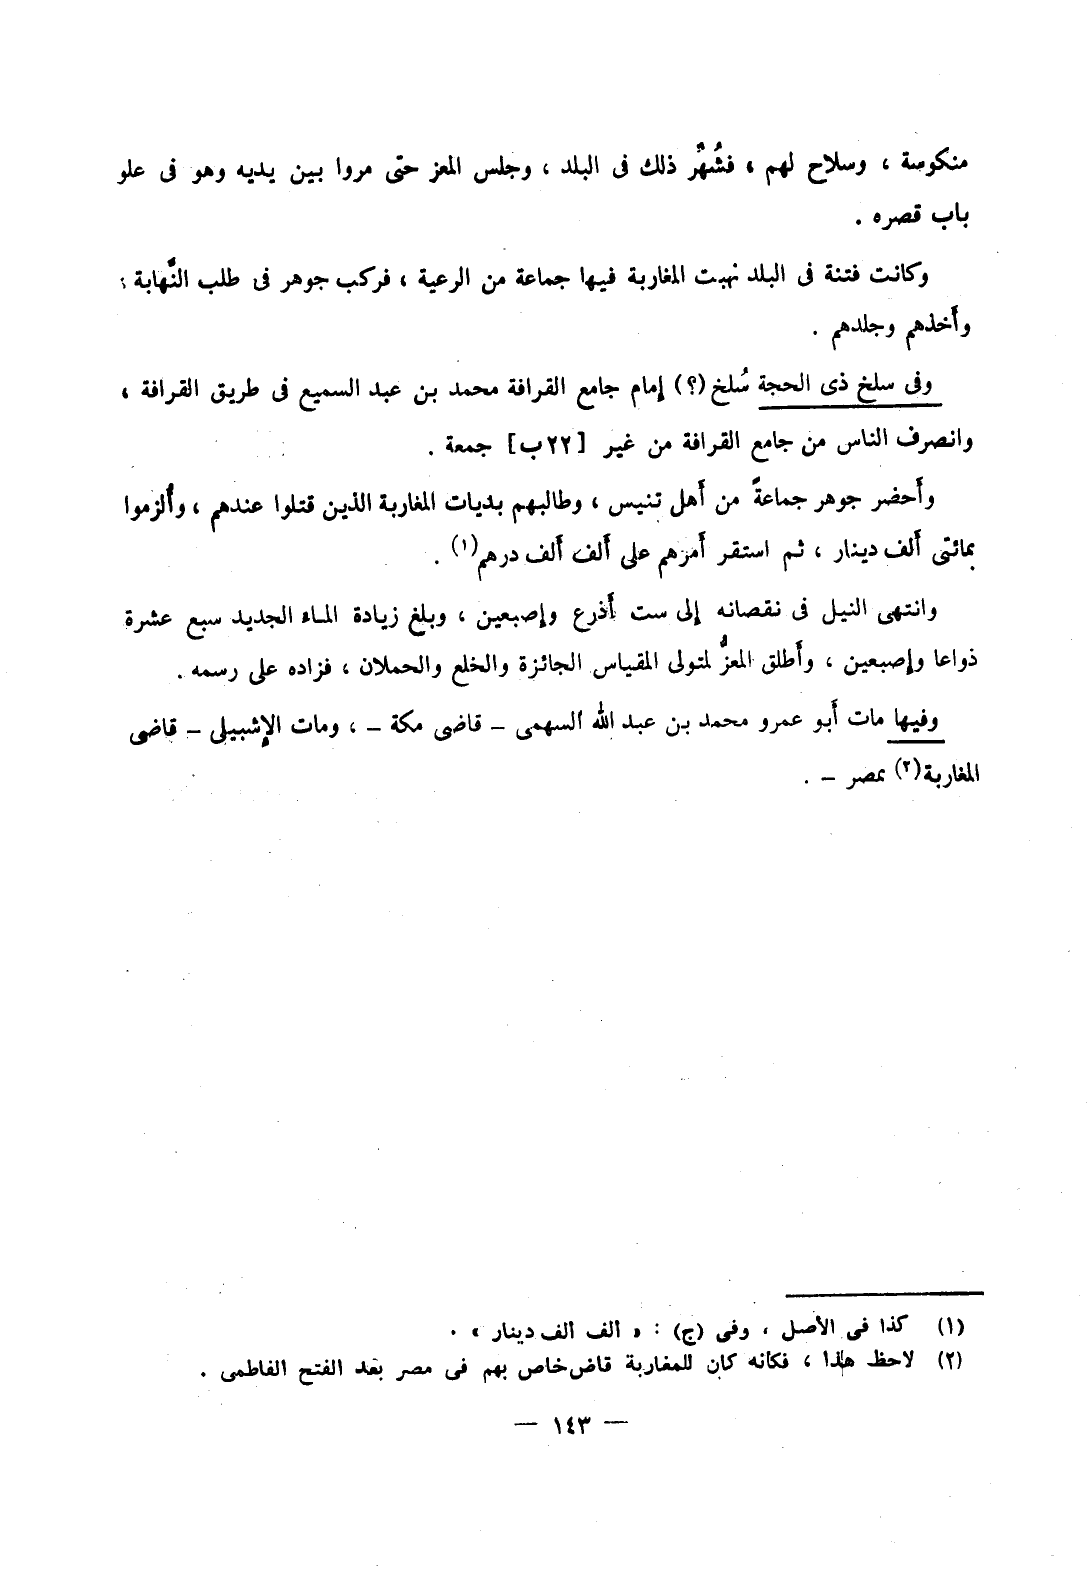 منكوسة ، وسلاح لهم ، فشُهِّر ذلك فى البلد ، وجلس المعز حتّى مروا بين يديه وهو فى علو
باب قصره .
وكانت فتنة فى البلد نهبت المغاربة فيها جماعة من الرعية ، فركب جوهر فى طلب النَّهابة ؛
وأَخذهم وجلدهم .
وفى سلخ ذى الحجة سُلخ (؟) إمام جامع القرافة محمد بن عبد السميع فى طريق القرافة ،
وانصرف الناس من جامع القرافة من غير [ ٢٢ ب ] جمعة .
وأَحضر جوهر جماعةً من أَهل تنيس ، وطالبهم بديات المغاربة الذين قتلوا عندهم ، وأُلزموا
بمائتى أَلف دينار ، ثم استقر أَمرهم على أَلف أَلف درهم(١) .
وانتهى النيل فى نقصانه إلى ست أَذرع وإصبعين ، وبلغ زيادة الماء الجديد سبع عشرة
ذواعا وإصبعين ، وأَطلق المعزُّ لمتولى المقياس الجائزة والخلع والحملان ، فزاده على رسمه .
وفيها مات أَبو عمرو محمد بن عبد الله السهمى – قاضى مكة – ، ومات الإشبيلى – قاضى
المغاربة(٢) بمصر – .
(١) كذا فى الأصل ، وفى (ج) : « الف الف دينار » .
(٢) لاحظ هذا ، فكانه كان للمغاربة قاض خاص بهم فى مصر بعد الفتح الفاطمى .
— ١٤٣ —